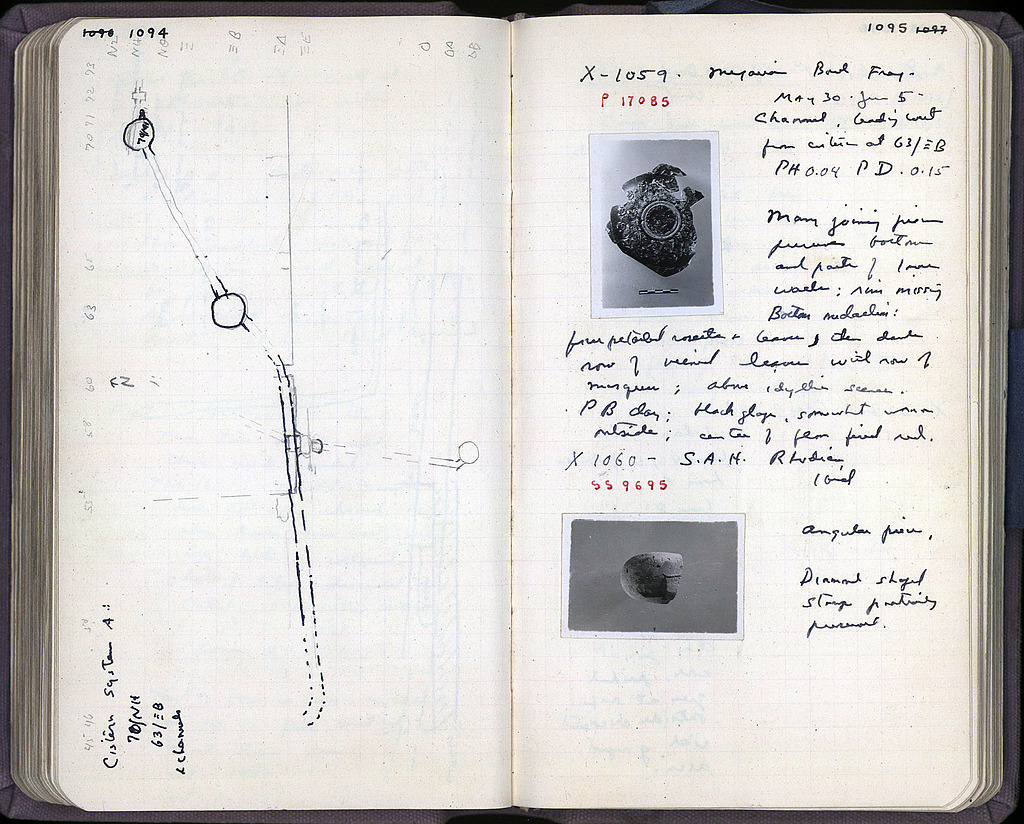 1096 1094
N2 NH NΘ Ξ ΞB ΞΔ ΞE O OΔ OB
73
72
71
70
65
63
60
58
N
Cistern System A:
70/NH
63/ΞB
& channels
45 46
1095 1097
X-1059. Megarian Bowl Frag.
P 17085
MAY 30 - Jun 5 -
Channel, leading west
from cistern at 63/ΞB
PH 0.04 P D. 0.15
Many joining pieces
preserve bottom
and parts of lower
walls; rim missing
Bottom medallion:
four petalled rosette & leaves; then double
row of veined leaves with row of
masques; above idyllic scenes.
P B clay; black glaze, somewhat worn
outside; center of floor fired red.
X 1060 - S.A.H. Rhodian
SS 9695
Angular piece,
Diamond shaped
stamp partially
preserved.